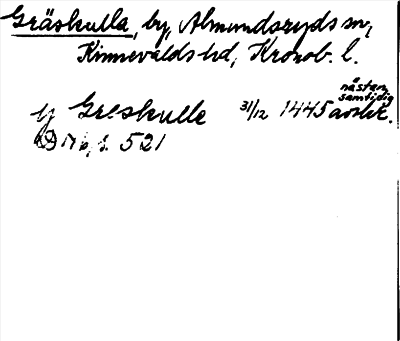 Gräskulla, by, Almundsryds sn,
Kinnevalds hd, Kronob. l.
nästan
samtidig
y Greskulle 31/12 1445 avskr.
s. 521